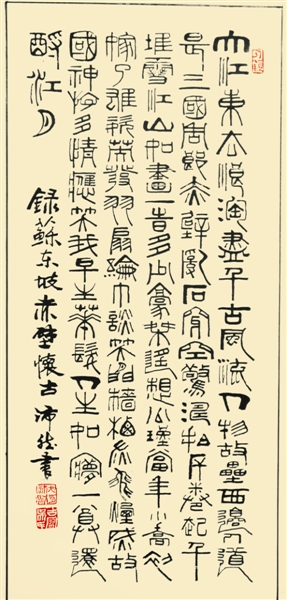 大江東去浪淘盡千古風流人物故壘西邊人道
是三國周郎赤壁亂石穿空驚濤拍岸卷起千
堆雪江山如畫一時多少豪傑遙想公瑾當年小喬初
嫁了雄姿英發羽扇綸巾談笑間檣櫓灰飛煙滅故
國神游多情應笑我早生華髮人生如夢一尊還
酹江月
錄蘇东坡赤壁懷古沛然書